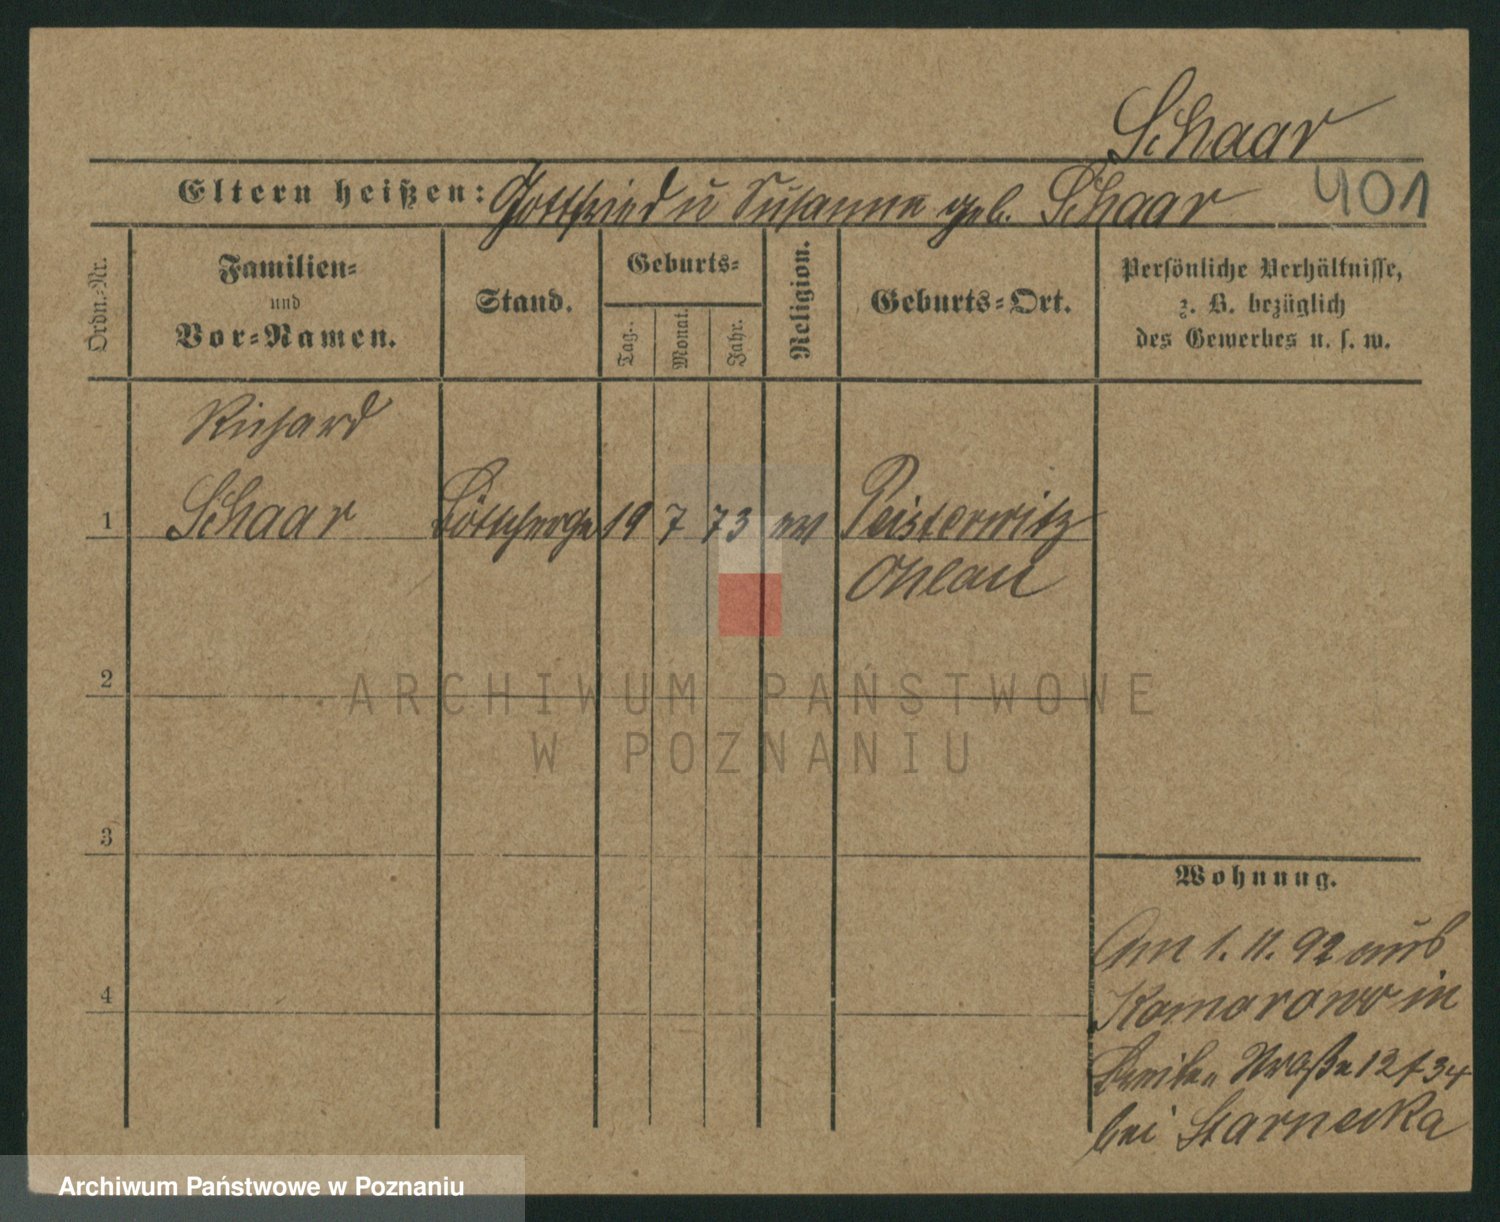 Schaar
Eltern heißen: Gottfried u Susanne geb. Schaar 401
Ordn.-Nr.
Familien-
und
Vor-Namen.
Stand.
Geburts-
Tag.
Monat.
Jahr.
Religion.
Geburts-Ort.
Persönliche Verhältnisse,
z. B. bezüglich
des Gewerbes u. s. w.
Richard
1 Schaar Böttcherge 19 7 73 ev Peisterwitz
Ohlau
2
ARCHIWUM PAŃSTWOWE
W POZNANIU
3
Wohnung.
Am 1. 11. 92 aus
4
Komorowo in
Breite Straße 12
bei Starnecka
Archiwum Państwowe w Poznaniu